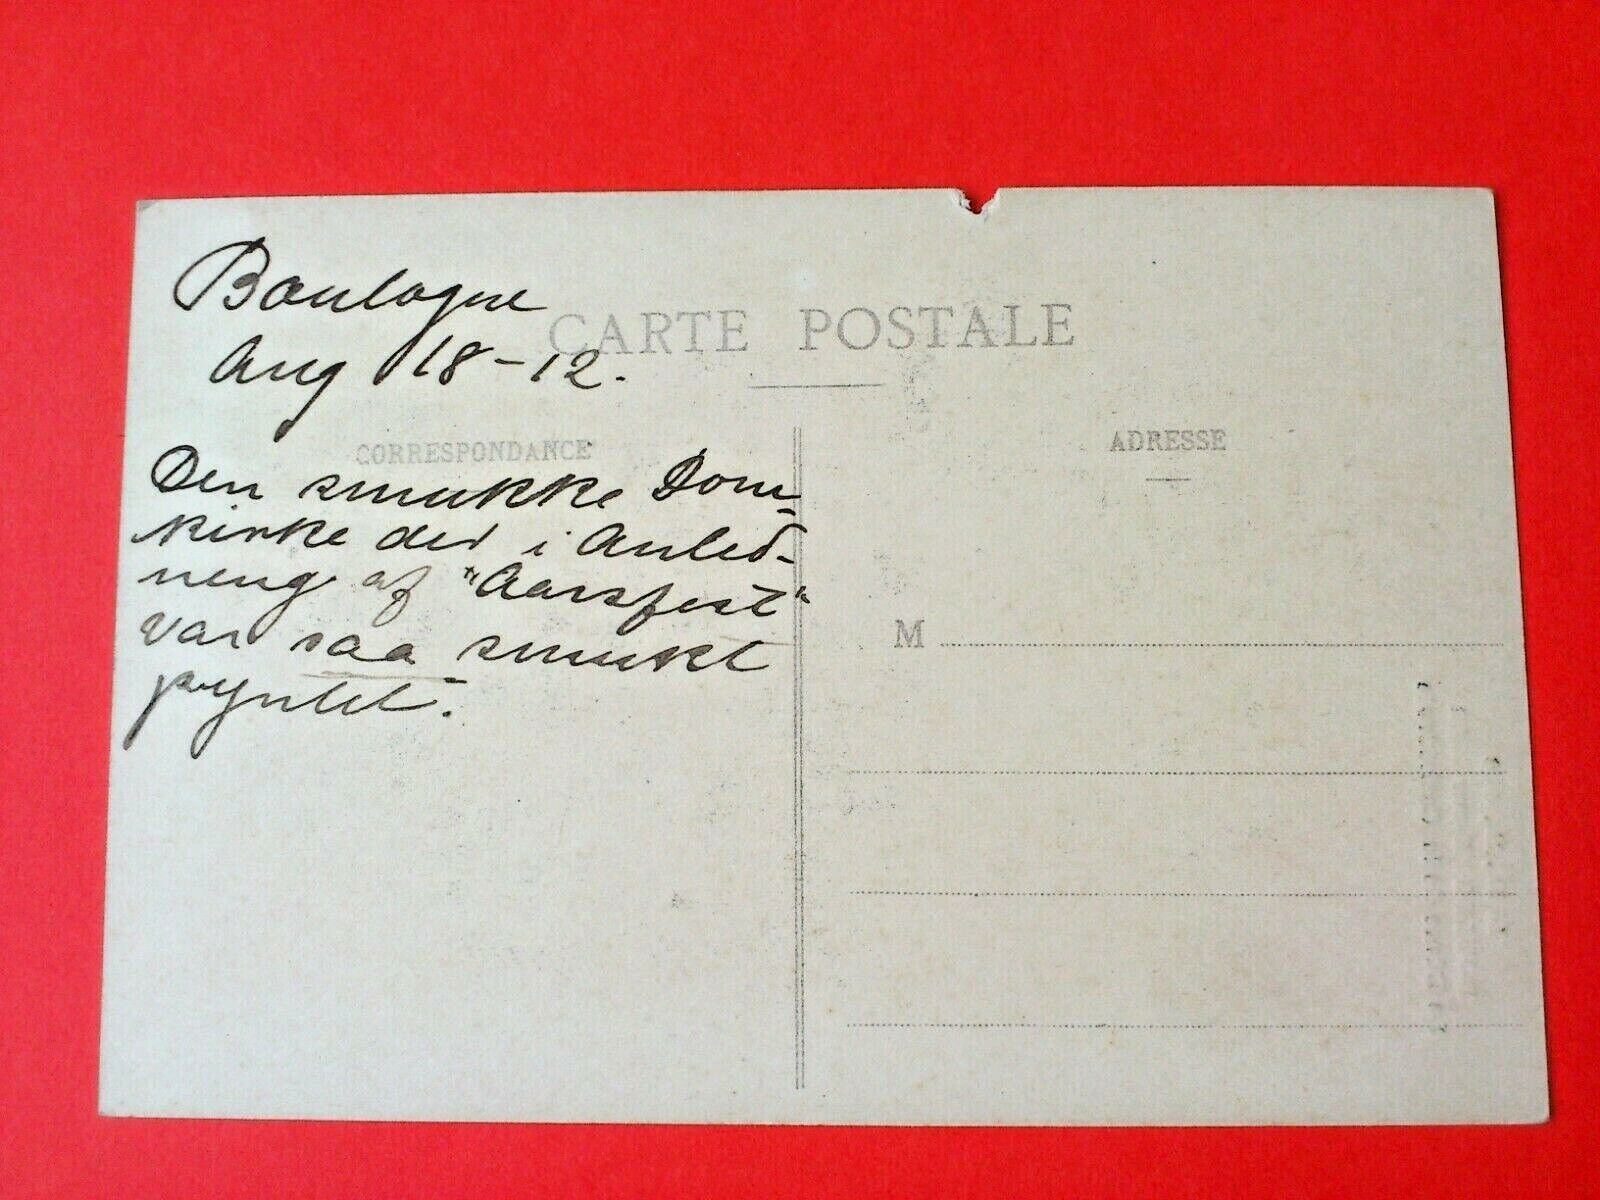 Boulogne
Aug 18-12.
CARTE POSTALE
CORRESPONDANCE
Den smukke Dom-
kirke der i Anled-
ning af "Aarsfest"
var saa smukt
pyntet.
ADRESSE
M